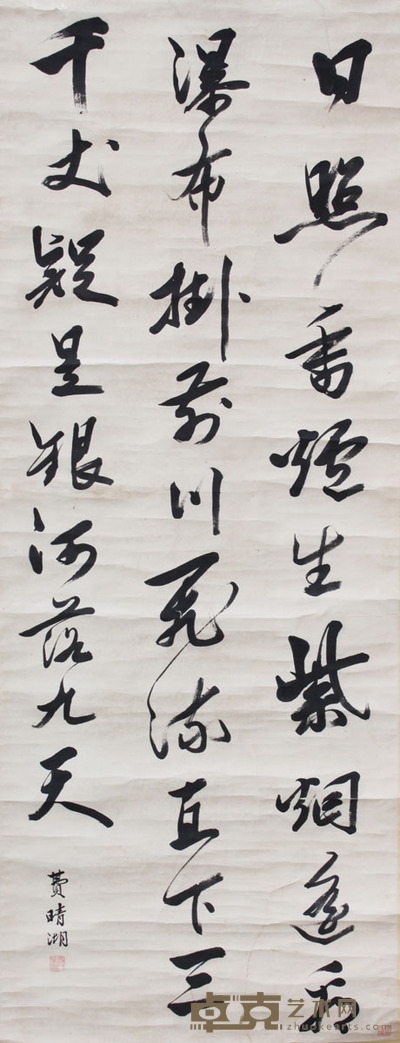 日照香炉生紫烟遥看
瀑布掛前川飛流直下三
千丈疑是银河落九天
費晴湖
卓克艺术网
www.zhuokearts.com